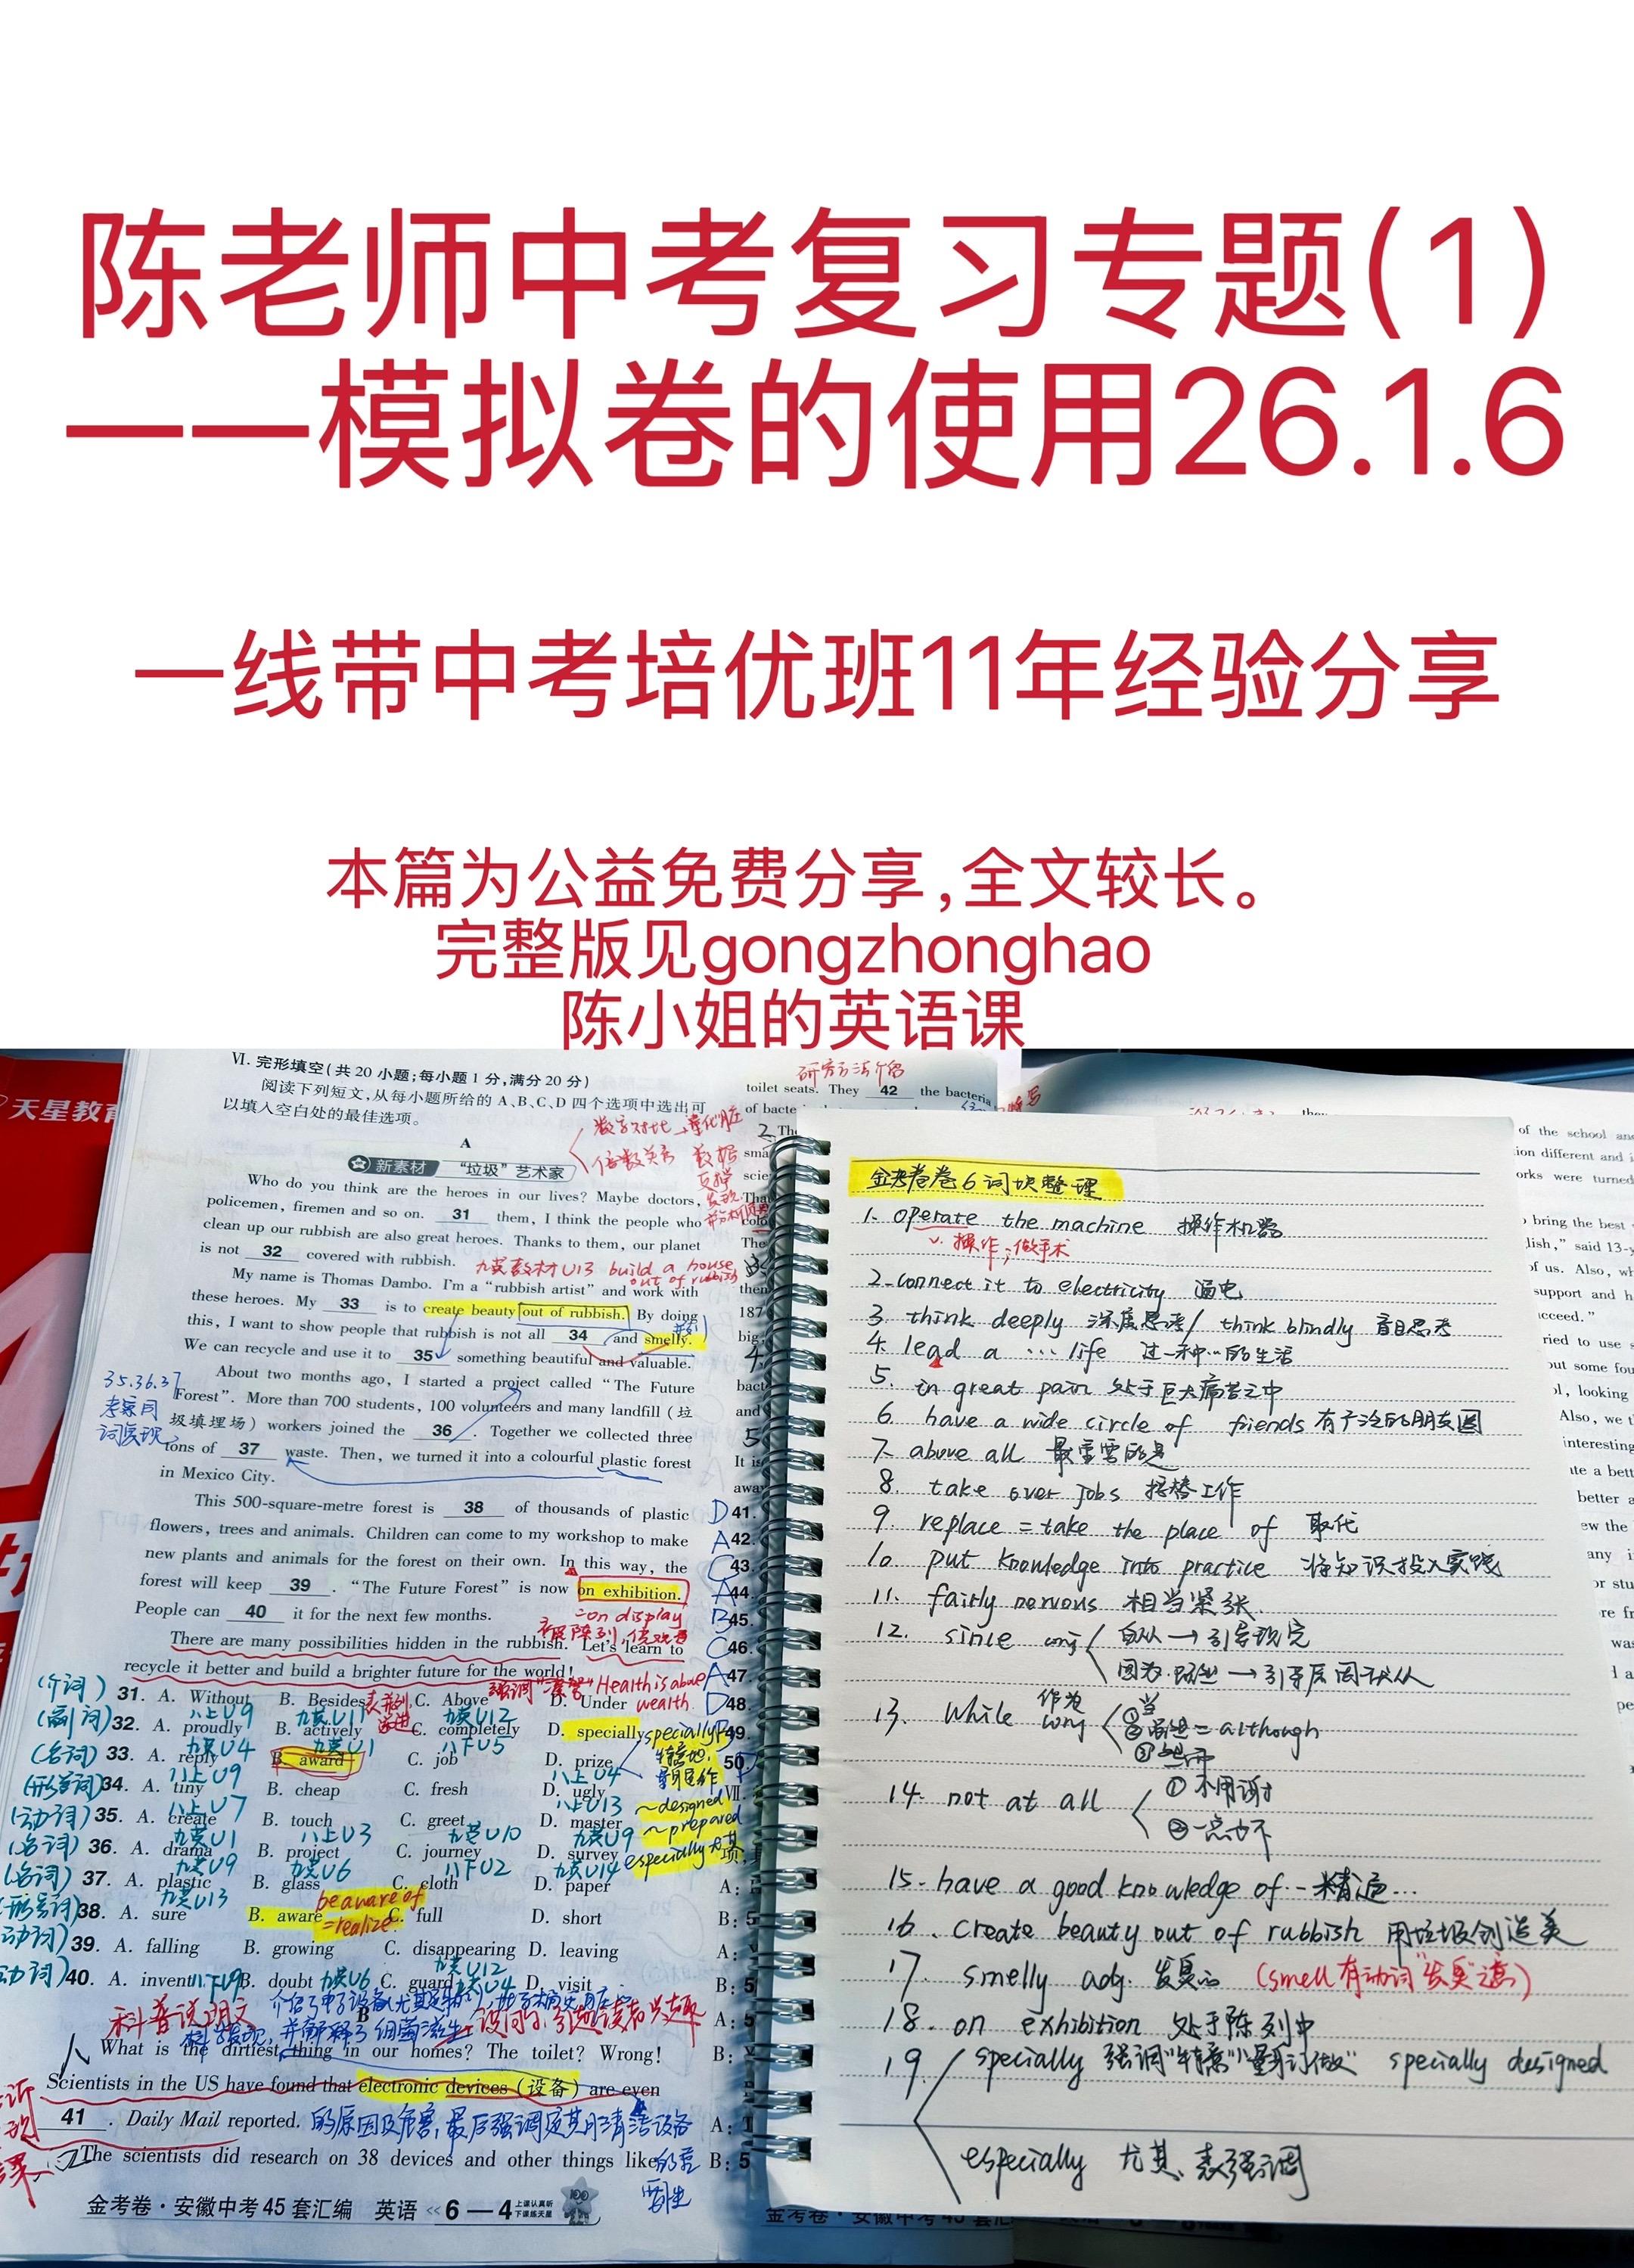 陈老师中考复习专题(1)
——模拟卷的使用26.1.6
一线带中考培优班11年经验分享
本篇为公益免费分享,全文较长。
完整版见gongzhonghao
陈小姐的英语课
天星教育
VI. 完形填空(共 20 小题;每小题 1 分,满分 20 分)
阅读下列短文,从每小题所给的 A、B、C、D 四个选项中选出可
以填入空白处的最佳选项。
A
新素材 “垃圾”艺术家
Who do you think are the heroes in our lives? Maybe doctors,
policemen, firemen and so on. 31 them, I think the people who
clean up our rubbish are also great heroes. Thanks to them, our planet
is not 32 covered with rubbish.
九英教材U13 build a house out of rubbish
My name is Thomas Dambo. I'm a “rubbish artist” and work with
these heroes. My 33 is to create beauty out of rubbish. By doing
this, I want to show people that rubbish is not all 34 and smelly.
We can recycle and use it to 35 something beautiful and valuable.
About two months ago, I started a project called “The Future
Forest”. More than 700 students, 100 volunteers and many landfill (垃
圾填埋场) workers joined the 36 . Together we collected three
tons of 37 waste. Then, we turned it into a colourful plastic forest
in Mexico City.
35.36.37
考察同
词复现
This 500-square-metre forest is 38 of thousands of plastic
flowers, trees and animals. Children can come to my workshop to make
new plants and animals for the forest on their own. In this way, the
forest will keep 39 . “The Future Forest” is now on exhibition.
People can 40 it for the next few months.
=on display
There are many possibilities hidden in the rubbish. Let's learn to
recycle it better and build a brighter future for the world!
Health is above wealth
(介词) 31. A. Without B. Besides C. Above D. Under
八上U9 九英U11 九英U12
(副词) 32. A. proudly B. actively C. completely D. specially
九英U4 九英U1 八下U5
(名词) 33. A. reply B. award C. job D. prize
八上U9 八上U4
(形容词) 34. A. tiny B. cheap C. fresh D. ugly
八上U7 八上U13
(动词) 35. A. create B. touch C. greet D. master
九英U1 八上U3 九英U10 九英U9
(名词) 36. A. drama B. project C. journey D. survey
九英U9 九英U6 八下U2 九英U14
(名词) 37. A. plastic B. glass C. cloth D. paper
九英U13 be aware of =realize
(形容词) 38. A. sure B. aware C. full D. short
(动词) 39. A. falling B. growing C. disappearing D. leaving
九英U12
(动词) 40. A. invent 八下U9 B. doubt 九英U6 C. guard 九英U4 D. visit
~designed
~prepared
especially 尤其
科普说明文
B
What is the dirtiest thing in our homes? The toilet? Wrong!
Scientists in the US have found that electronic devices (设备) are even
41 . Daily Mail reported. 的原因及危害,最后强调定期清洁设备
的重要性
The scientists did research on 38 devices and other things like
金考卷·安徽中考 45 套汇编 英语 6—4
研究方法介绍
toilet seats. They 42 the bacteria
D 41.
A 42.
C 43.
A 44.
B 45.
C 46.
A 47.
D 48.
49.
50.
金考卷卷6词块整理
1. operate the machine 操作机器
v. 操作;做手术
2. connect it to electricity 通电
3. think deeply 深度思考/ think blindly 盲目思考
4. lead a … life 过一种…的生活
5. in great pain 处于巨大痛苦之中
6. have a wide circle of friends 有广泛的朋友圈
7. above all 最重要的是
8. take over jobs 接替工作
9. replace = take the place of 取代
10. put knowledge into practice 将知识投入实践
11. fairly nervous 相当紧张.
12. since conj 自从 → 引导现完
因为.既然 → 引导原因状从
13. While 作为conj ①当
②虽然= although
③然而
14. not at all ①不用谢
②一点也不
15. have a good knowledge of … 精通…
16. create beauty out of rubbish 用垃圾创造美
17. smelly adj. 发臭的 (smell有动词“发臭”之意)
18. on exhibition 处于陈列中
19 specially 强调“特意”“量身订做” specially designed
especially 尤其、表强调